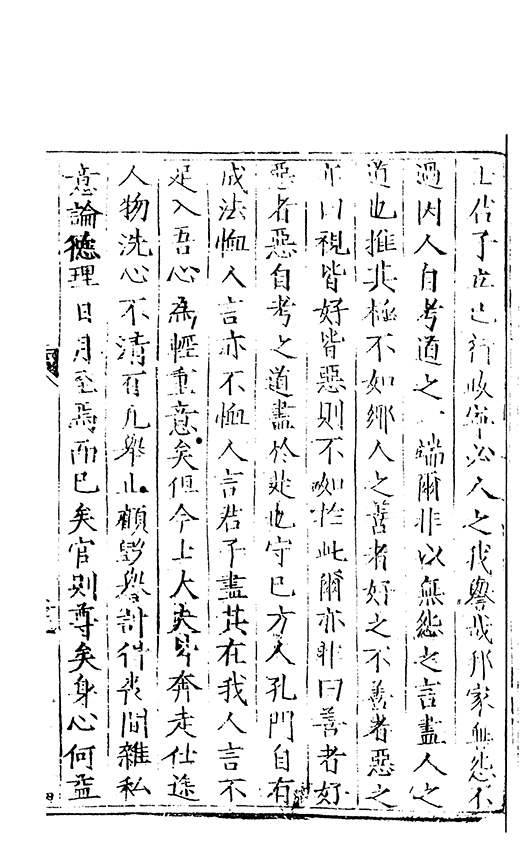 士君子立己行收寧必人之我譽哉邦家無怨不
過因人自考道之一端爾非以無怨之言盡人之
道也推其極不如鄉人之善者好之不善者惡之
可曰視皆好皆惡則不如於此爾亦非曰善者好
惡者惡自考之道盡於是也守己方入孔門自有
成法恤人言亦不恤人言君子盡其在我人言不
足入吾心為輕重意矣但今士大夫畢奔走仕途
人物洗心不清有凡舉止顧毀譽計得喪間雜私
意論德理日月至焉而已矣官則尊矣身心何益